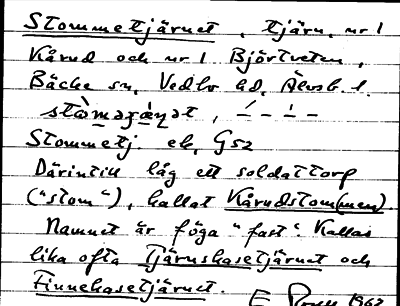 Stommetjärnet, tjärn, nr 1
Kårud och nr 1 Björtveten,
Bäcke sn, Vedbo hd, Älvsb. l.
Stommetj. ek. G52
Därintill låg ett soldattorp
("stom"), kallat Kårudstom(men).
Namnet är föga "fast". Kallas
lika ofta Tjärnshasetjärnet och
Finnehasetjärnet.
1962